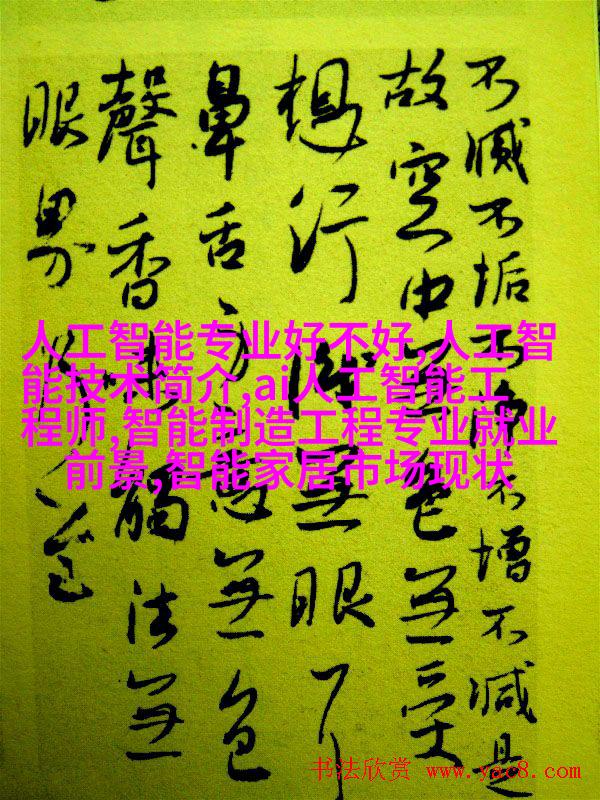 不滅不垢不淨不增不減是
故空中無色無受
想行識無眼耳
鼻舌身意無色
聲香味觸法無
眼界
人工智能专业好不好,人工智
能技术简介,ai人工智能工
程师,智能制造工程专业就业
前景,智能家居市场现状
书法欣赏 www.yac8.com